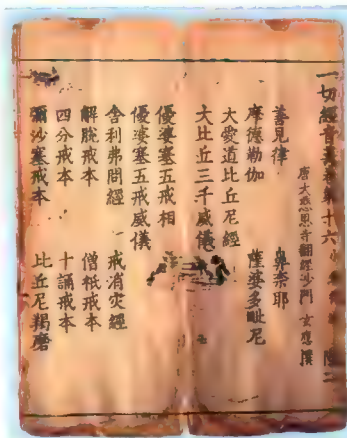 一切經音義卷第十六
唐大慈恩寺翻經沙門 玄應撰
善見律 鼻柰耶
摩德勒伽 薩婆多毗尼
大愛道比丘尼經
大比丘三千威儀
優婆塞五戒相
優婆塞五戒威儀
舍利弗問經 戒消灾經
解脫戒本 僧祇戒本
四分戒本 十誦戒本
彌沙塞戒本 比丘尼羯磨